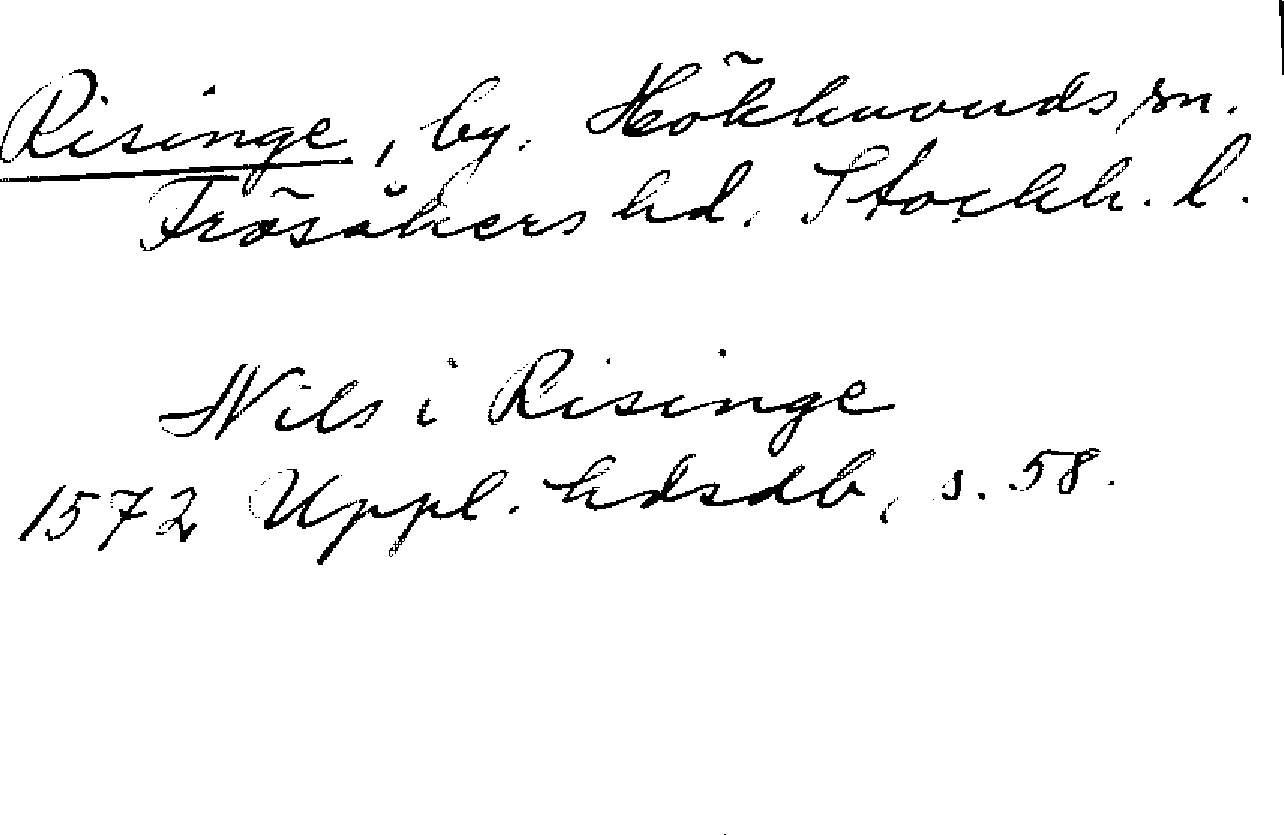 Risinge, by. Hökhuvuds sn.
Frösåkers hd. Stockh. l.
Nils i Risinge
1572 Uppl. hdsdb, s. 58.